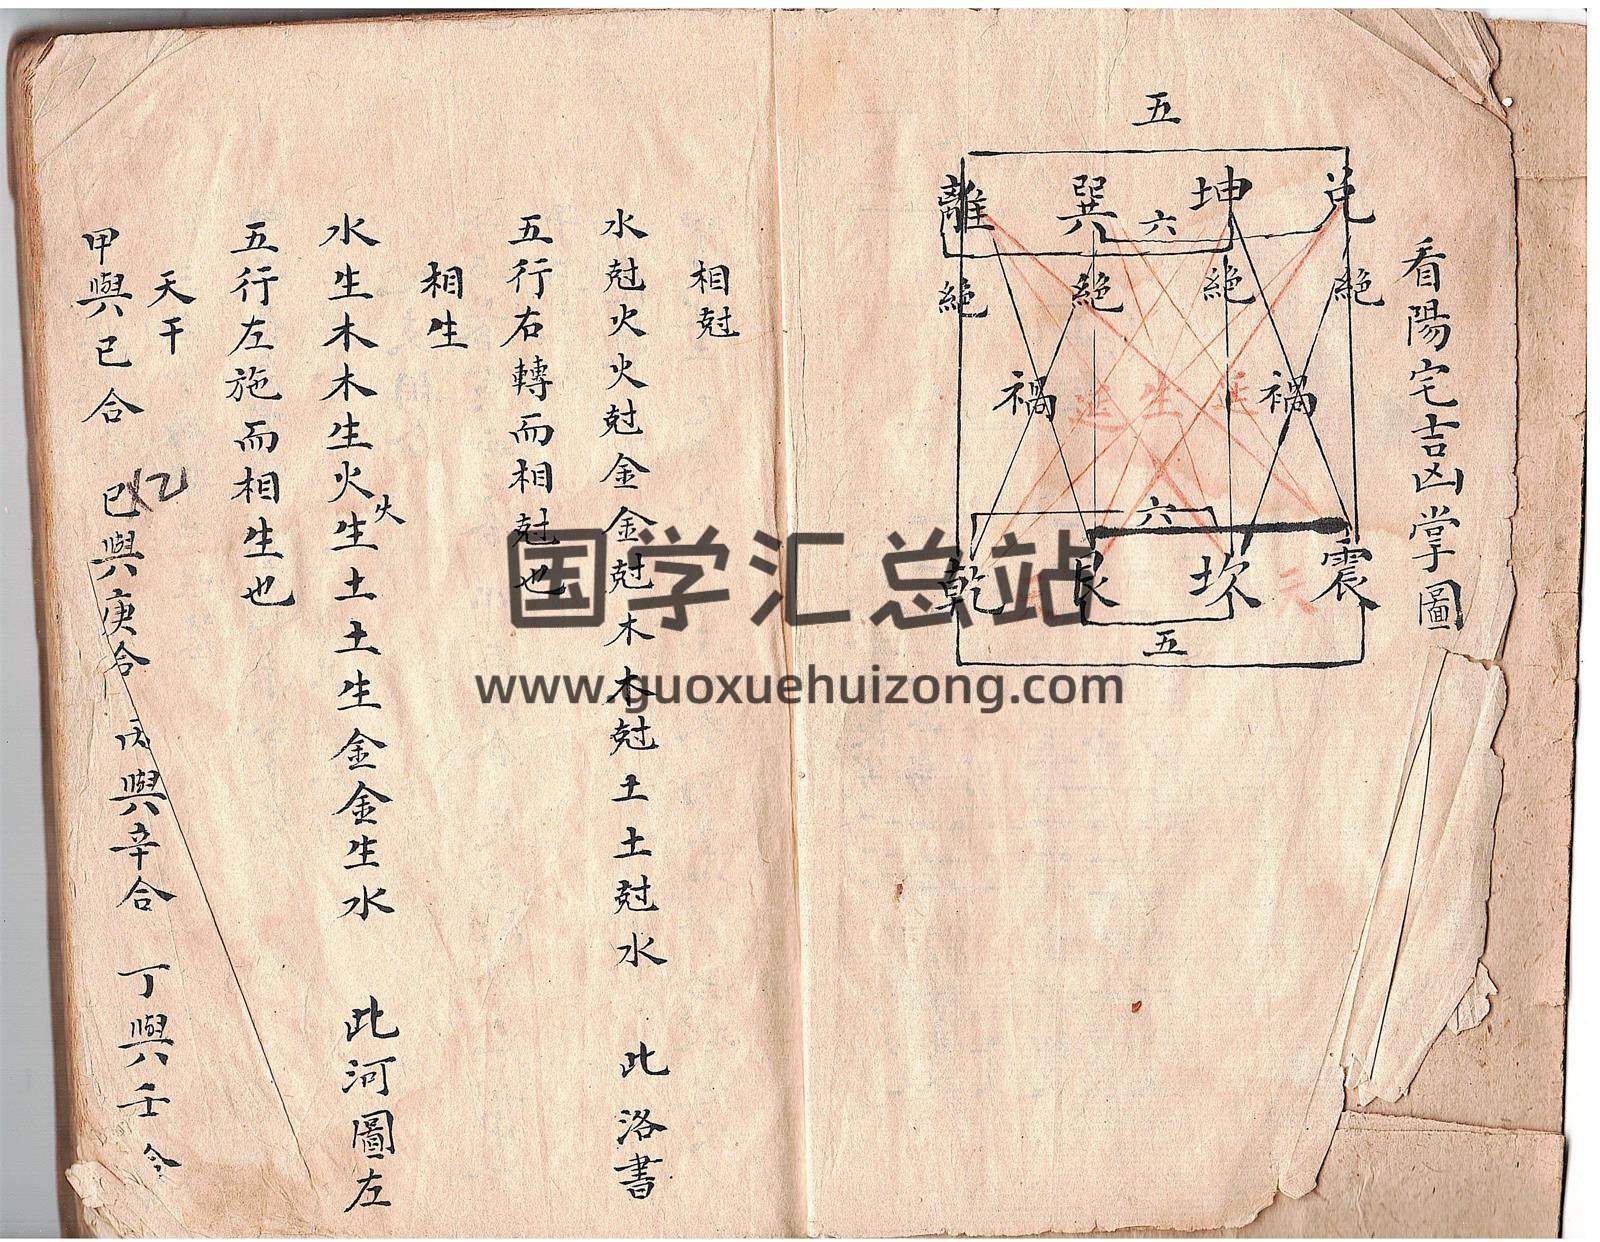 看陽宅吉凶掌圖
五
離 巽 坤 兌
六
絕 絕 絕 絕
禍 延 生 延 禍
六
乾 艮 坎 震
天 天
五
相尅
水尅火火尅金金尅木木尅土土尅水 此洛書
五行右轉而相尅也
相生
水生木木生火火生土土生金金生水 此河圖左
五行左施而相生也
天干
甲與已合 已乙與庚合 丙與辛合 丁與壬合
国学汇总站
www.guoxuehuizong.com